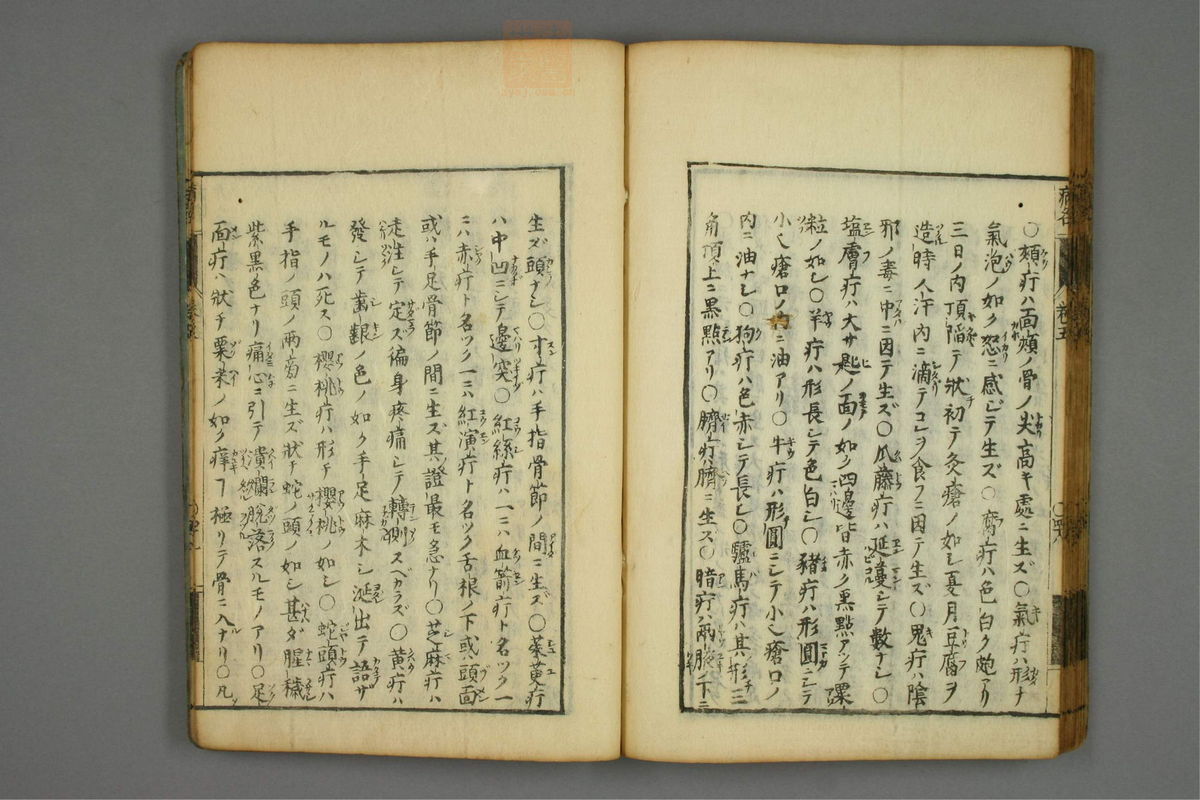 ○頬疔ハ面頬ノ骨ノ尖高キ處ニ生ズ○氣疔ハ形チ
氣泡ノ如ク怒ニ感ジテ生ズ○疔ハ色白ク皰アリ
三日ノ内頂陷テ狀初テ灸瘡ノ如シ夏月豆腐ヲ
造時人汗内ニ滴テコレヲ食フニ因テ生ズ○鬼疔ハ陰
邪ノ毒ニ中ニ因テ生ズ○瓜藤疔ハ延蔓シテ數ナシ○
塩膚疔ハ大サ匙ノ面ノ如ク四邊皆赤ク黒點アツテ
粒ノ如シ○羊疔ハ形長シテ色白シ○豬疔ハ形圓ニシテ
小ク瘡口ノニ油アリ○牛疔ハ形圓ニシテ小ク瘡口ノ
内ニ油ナシ○狗疔ハ色赤シテ長シ○驢馬疔ハ其形三
角頂上ニ黒點アリ○臍疔ハ臍ニ生ズ○暗疔ハ兩腋ノ下ニ
生ズ頭ナシ○寸疔ハ手指骨節ノ間ニ生ズ○茱萸疔
ハ中凹ニシテ邊突○紅絲疔ハ一ニハ血箭疔ト名ヅク一
ニハ赤疔ト名ツク一ニハ紅演疔ト名ツク舌根ノ下或ハ頭面
或ハ手足骨節ノ間ニ生ズ其證最モ急ナリ○芝麻疔ハ
走注シテ定ズ徧身疼痛シテ轉側スベカラズ○黄疔ハ
發シテ歯齦ノ色ノ如ク手足麻木シ涎出テ語サ
ルモノハ死ス○櫻桃疔ハ形チ櫻桃ノ如シ○蛇頭疔ハ
手指ノ頭ノ兩旁ニ生ズ狀チ蛇ノ頭ノ如シ甚ダ腥穢
紫黒色ナリ痛心ニ引テ潰爛脱落スルモノアリ○足
面疔ハ狀チ粟米ノ如ク痒フ極リテ骨ニ入ナリ○凡